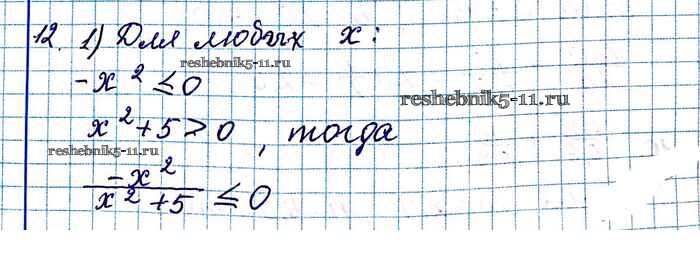 12. 1) Для любых x:
reshebnik5-11.ru
-x² ≤ 0
reshebnik5-11.ru
x² + 5 > 0, тогда
reshebnik5-11.ru
-x²
x² + 5 ≤ 0